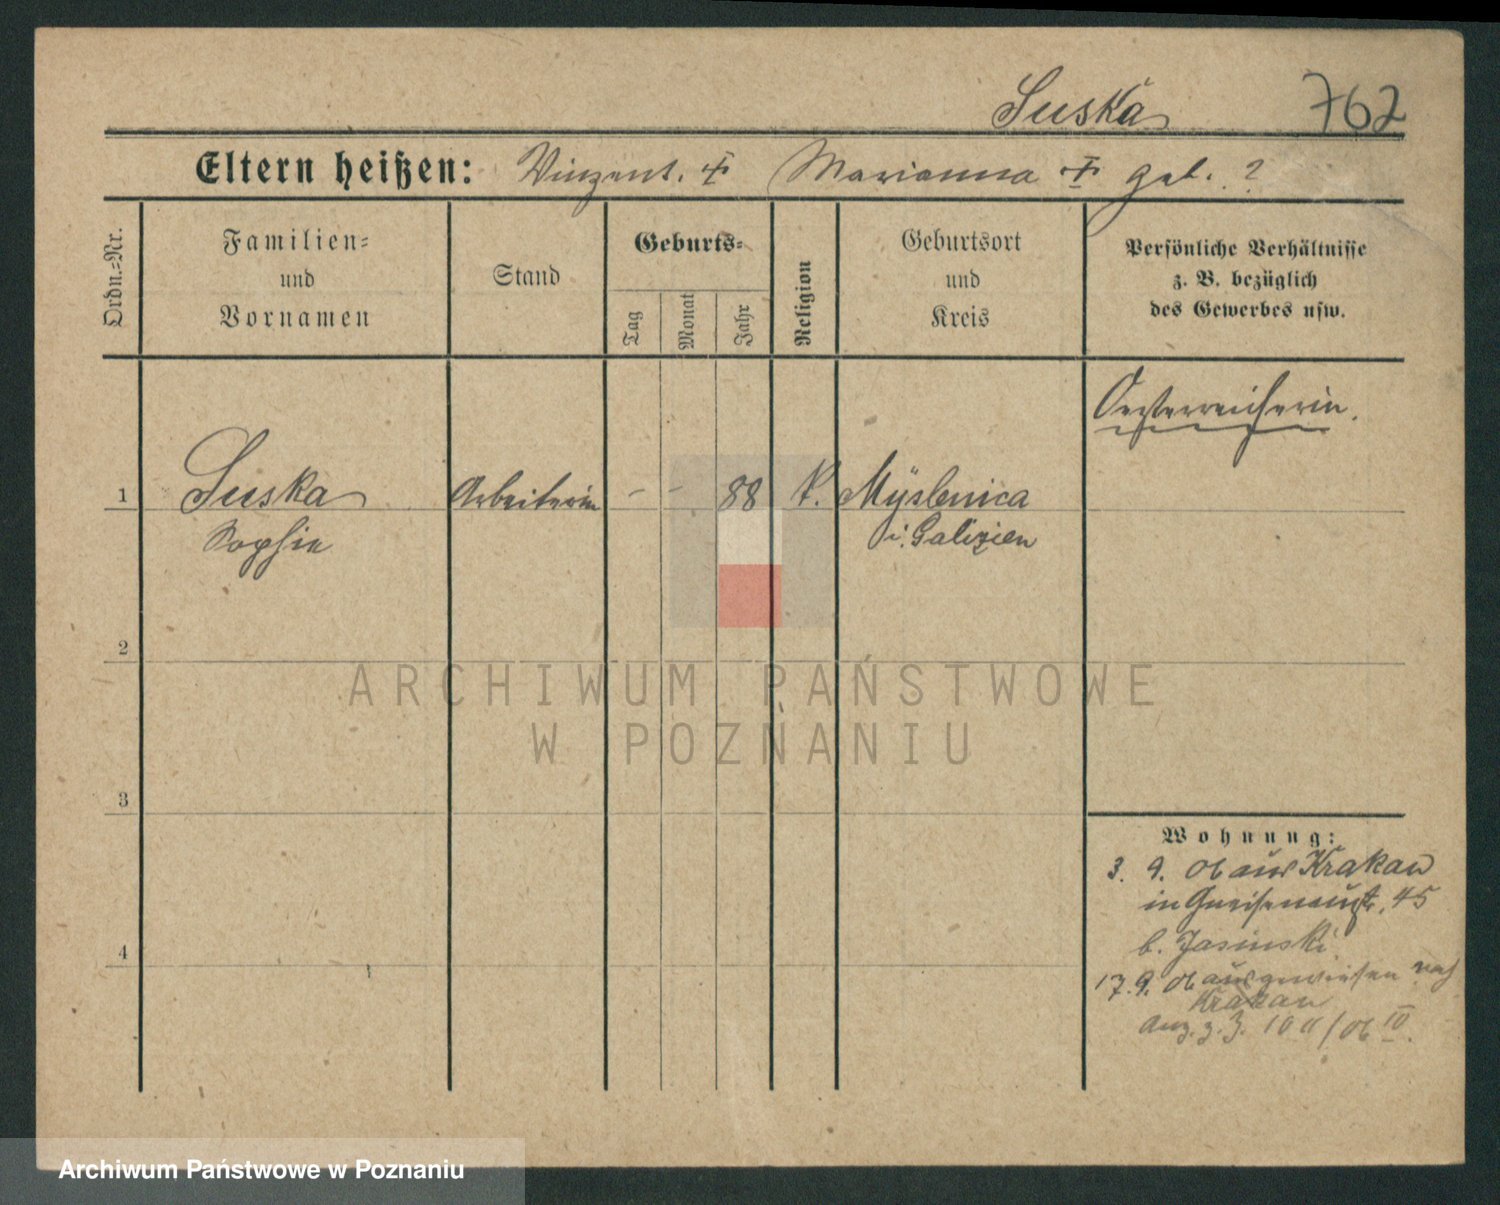 Suska 762
Eltern heißen: Vinzent. † Marianna † geb. ?
Ordn.-Nr.
Familien-
und
Vornamen
Stand
Geburts-
Tag
Monat
Jahr
Religion
Geburtsort
und
Kreis
Persönliche Verhältnisse
z. B. bezüglich
des Gewerbes usw.
Oesterreicherin.
1 Suska Arbeiterin - - 88 k. Myslenica
Sophie i. Galizien
2
3
4
Wohnung:
3. 9. 06 aus Krakau
in Gneisenaustr. 45
b. Jasinski
17. 9. 06 ausgewiesen nach
Krakau
Anz. z. J. /06 III.
ARCHIWUM PAŃSTWOWE
W POZNANIU
Archiwum Państwowe w Poznaniu